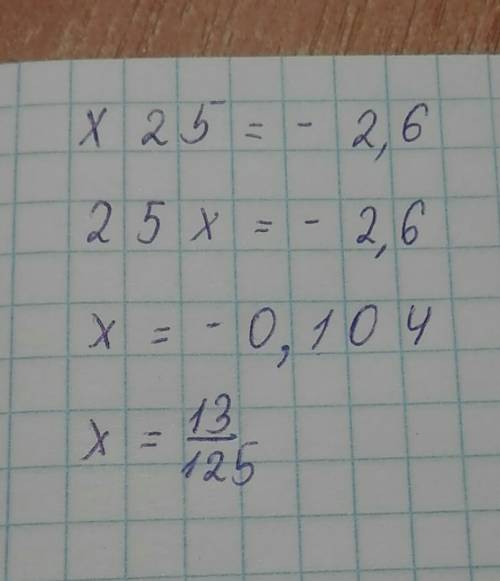 x 25 = - 2,6
25x = - 2,6
x = - 0,104
x = 13/125